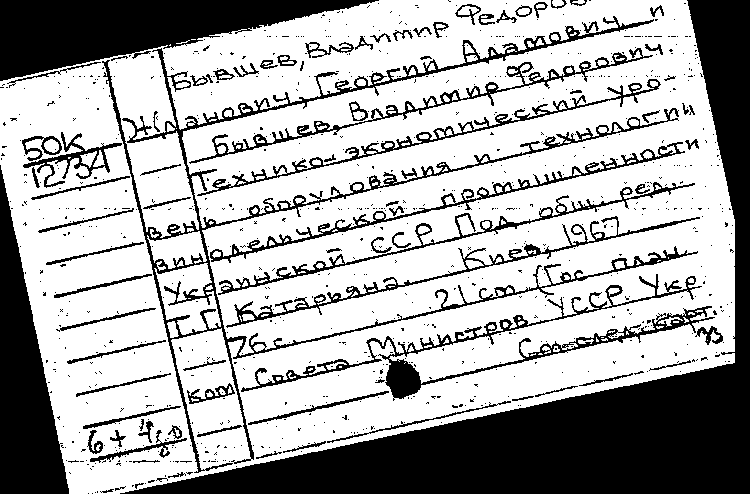 Бывшев, Владимир Федоров
Жданович, Георгий Адамович и
50К Бывшев, Владимир Федорович.
12734 Технико-экономический уро-
вень оборудования и технологии
винодельческой промышленности
Украинской ССР. Под общ. ред.
Г.Г. Катарьяна. Киев, 1967.
76 с. 21 cm (Гос план.
ком Совета Министров УССР. Укр
См. след. карт.
6 + 4